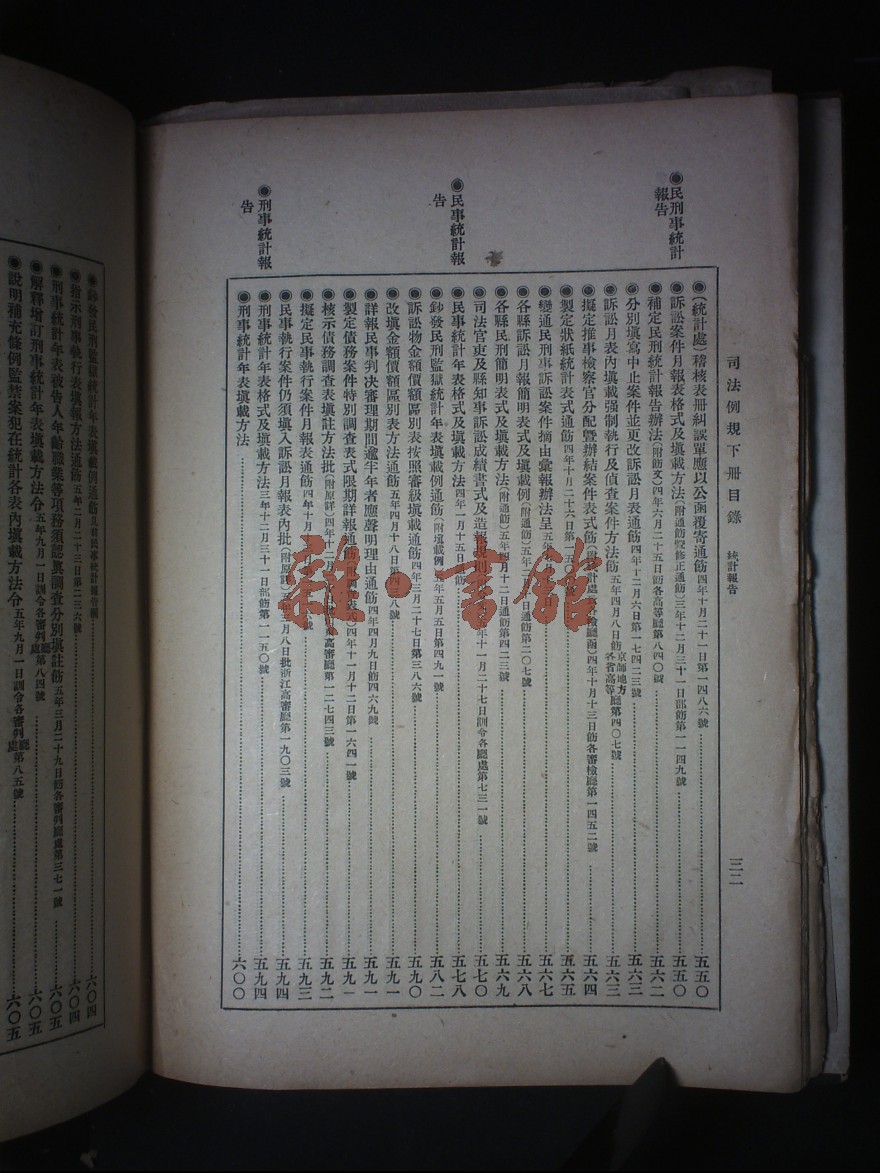 司法例規下冊目錄 統計報告 三二
◉民刑事統計報告
◉(統計處)稽核表冊糾誤單應以公函覆寄通飭四年十月二十一日第一四八六號 五五〇
◉訴訟案件月報表格式及填載方法(附通飭暨修正通飭)三年十二月三十一日部飭第一一四九號 五五〇
◉補定民刑統計報告辦法(附飭文)四年六月二十五日飭各高等廳第八四〇號 五六二
◉分別填寫中止案件並更改訴訟月表通飭四年十二月六日第一七四二三號 五六三
◉訴訟月表內填載强制執行及偵查案件方法飭五年四月八日飭京師地方各省高等廳第四〇七號 五六三
◉擬定推事檢察官分配暨辦結案件表式飭 四年十月十三日飭各審檢廳第一四五二號 五六四
◉製定狀紙統計表式通飭四年十月二十六日第一五 號 五六五
◉變通民刑事訴訟案件摘由彙報辦法呈五年 五六七
◉各縣訴訟月報簡明表式及填載例(附通飭)五年 日通飭第二〇七號 五六八
◉各縣民刑簡明表式及填載方法(附通飭)五年四月十二日通飭第四二三號 五六九
◉司法官吏及縣知事訴訟成績書式及造報規則 年十一月二十七日訓令各廳處第七三一號 五七〇
◉民事統計報告
◉民事統計年表格式及填載方法四年一月十五日 飭 五七八
◉鈔發民刑監獄統計年表填載例通飭(附填載例)五年五月五日第四九一號 五八二
◉訴訟物金額價額區別表按照審級填載通飭四年三月二十七日第三八六號 五九〇
◉改填金額價額區別表方法通飭五年四月十八日第四三八號 五九一
◉詳報民事判決審理期間逾半年者應聲明理由通飭四年四月九日飭四六九號 五九一
◉製定債務案件特別調查表式限期詳報通飭 四年十一月十二日第一六四一號 五九一
◉核示債務調查表填註方法批(附原詳)四年十二月 高審廳第一二七四三號 五九二
◉擬定民事執行案件月報表通飭四年十 五九三
◉民事執行案件仍須填入訴訟月報表內批(附原詳)五年三月八日批浙江高審廳第一九〇三號 五九四
◉刑事統計報告
◉刑事統計年表格式及填載方法三年十二月三十一日部飭第一一五〇號 五九四
◉刑事統計年表填載方法 六〇〇
◉鈔發民刑監獄統計年表填載例通飭見前民事統計報告欄 六〇四
◉指示刑事執行表填報方法通飭五年二月二十三日第二三六號 六〇四
◉刑事統計年表被告人年齡職業等項務須認真調查分別填註飭五年三月二十九日飭各審判廳處第三七一號
◉解釋增訂刑事統計年表填載方法令五年九月一日訓令各審判廳處第八四號 六〇五
◉說明補充條例監禁案犯在統計各表內填載方法令五年九月一日訓令各審判廳處第八五號 六〇五
雜·書館